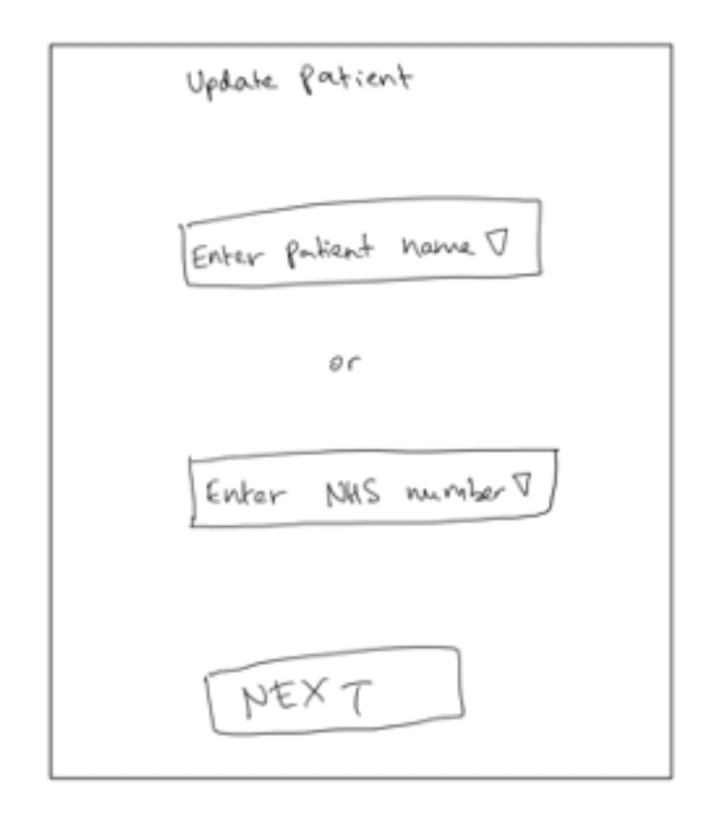 Update patient
Enter patient name
or
Enter NHS number
NEXT